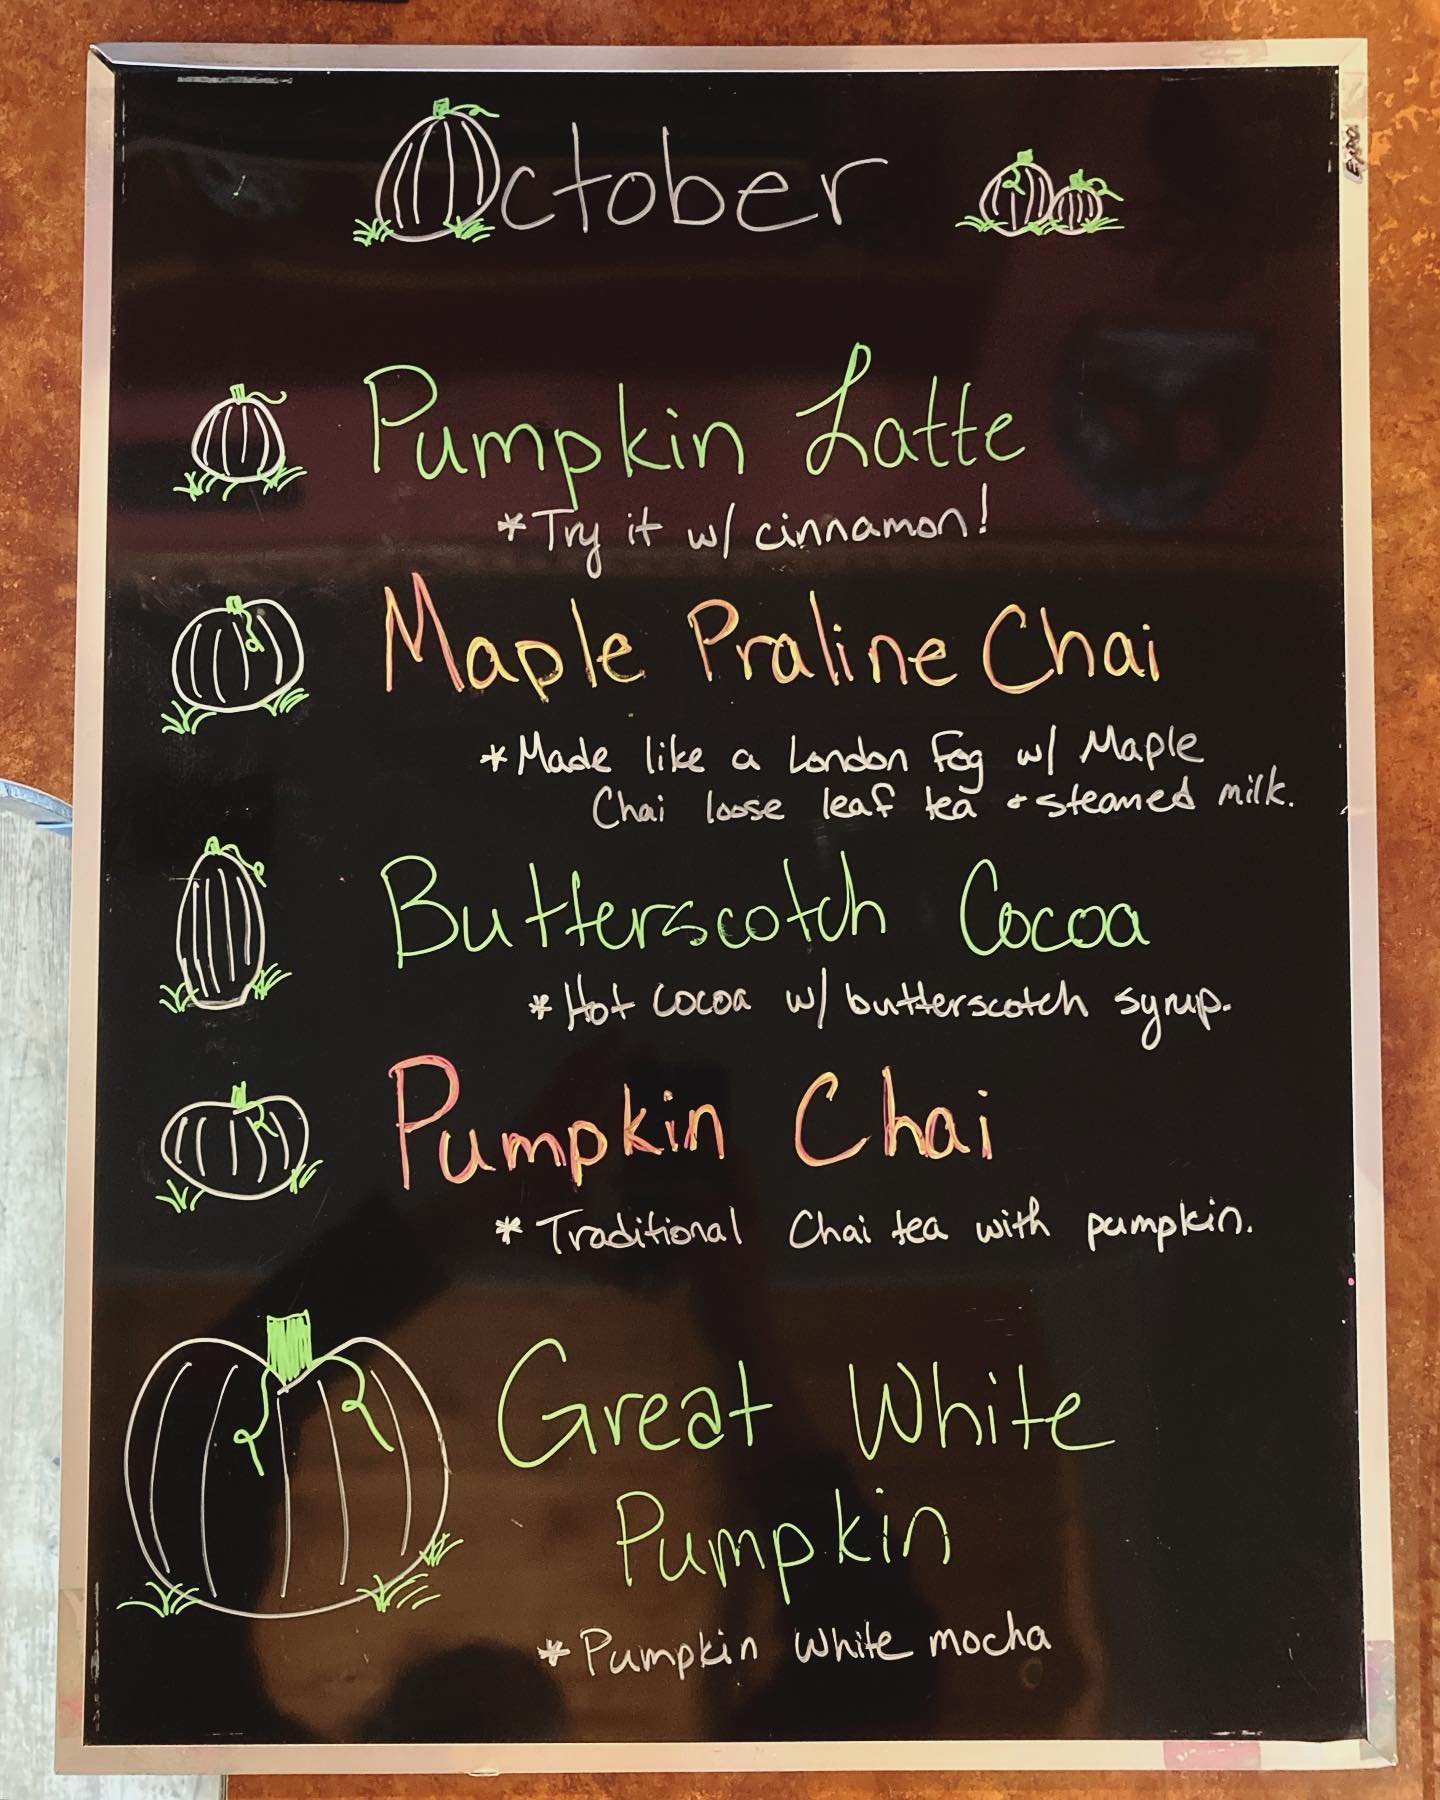 October
EXPO
Pumpkin Latte
*Try it w/ cinnamon!
Maple Praline Chai
*Made like a London Fog w/ Maple
Chai loose leaf tea + steamed milk.
Butterscotch Cocoa
*Hot cocoa w/ butterscotch syrup.
Pumpkin Chai
* Traditional Chai tea with pumpkin.
Great White
Pumpkin
* Pumpkin white mocha